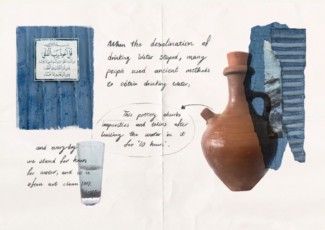 When the desalination of
drinking Water stoped, many
people used ancient methods
to obtain drinking water.
This pottery absorbs
impurities and odors after
leaving the water in it
for "10 hours".
and everyday
we stand for hours
for water, and it is
often not clean